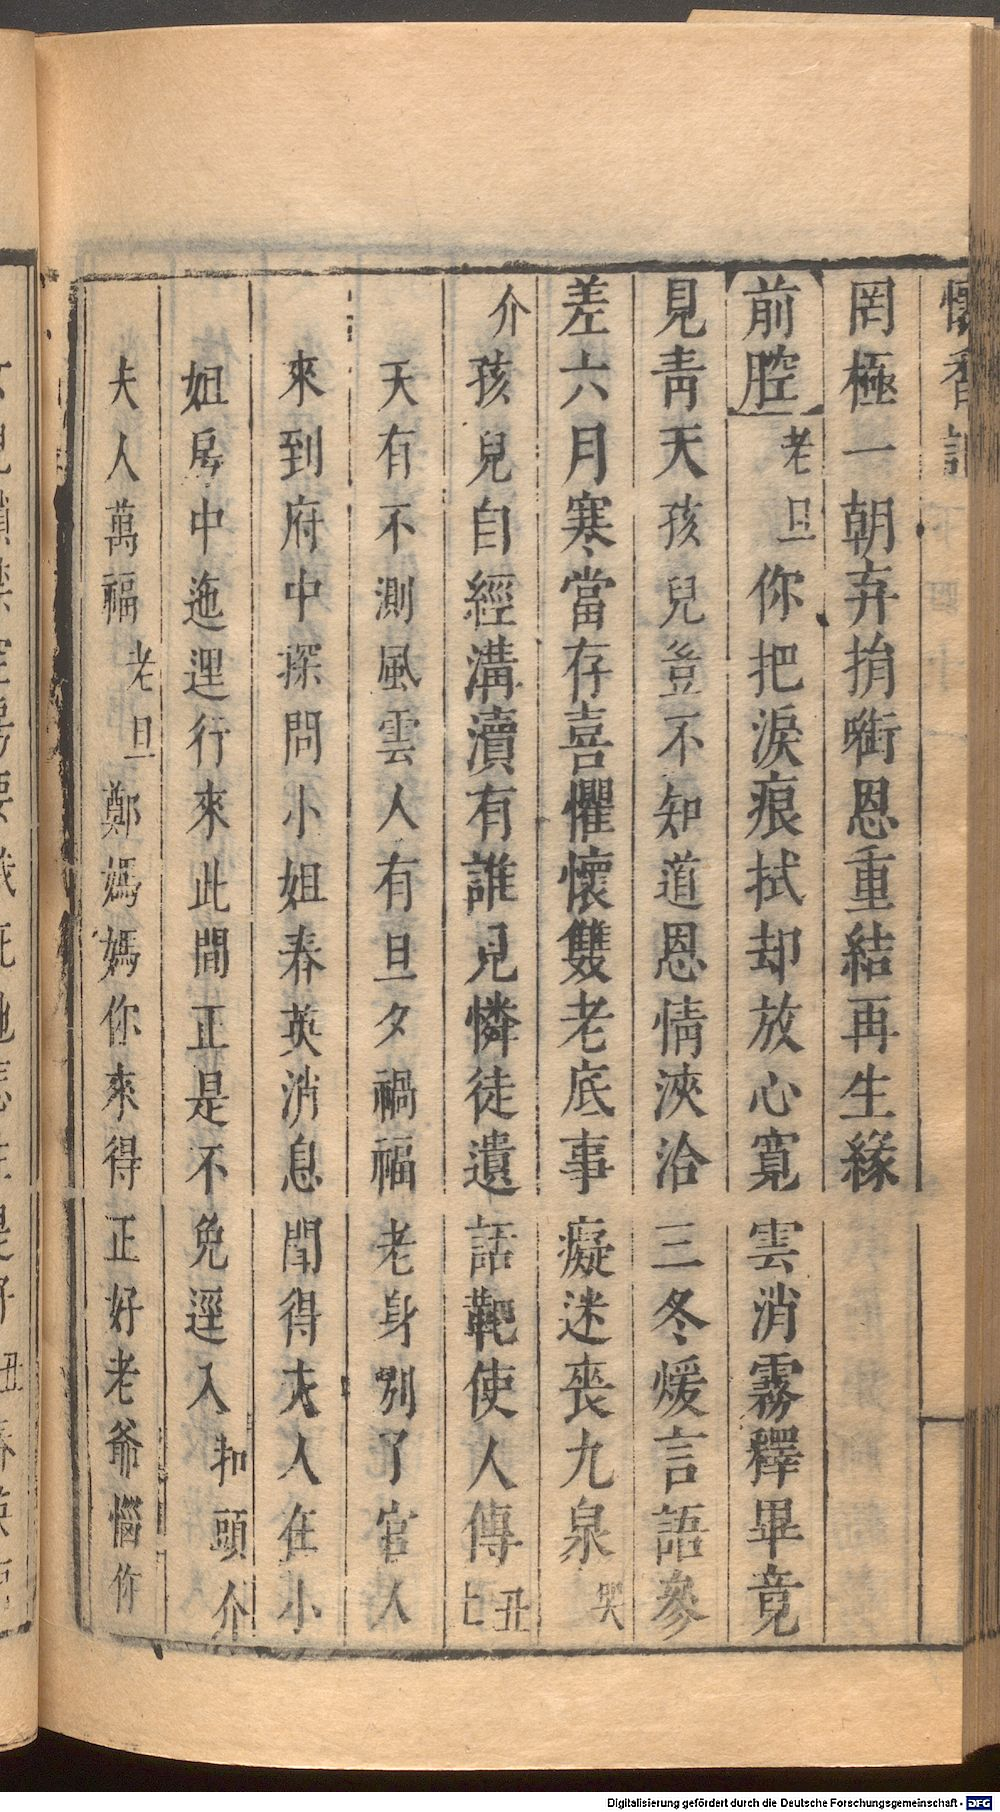 懷香記
罔極一朝弃捐啣恩重結再生緣
前腔 老旦 你把淚痕拭却放心寛雲消霧釋畢竟
見青天孩兒豈不知道恩情浹洽三冬煖言語參
差六月寒當存喜懼懷雙老底事癡迷喪九泉 哭
介 孩兒自經溝瀆有誰見憐徒遺話靶使人傳 丑上
天有不測風雲人有旦夕禍福老身別了官人
來到府中探問小姐春英消息聞得夫人在小
姐房中迤逗行來此間正是不免逕入 扣頭介
夫人萬福 老旦 鄭媽媽你來得正好老爺惱你
Digitalisierung gefördert durch die Deutsche Forschungsgemeinschaft - DFG